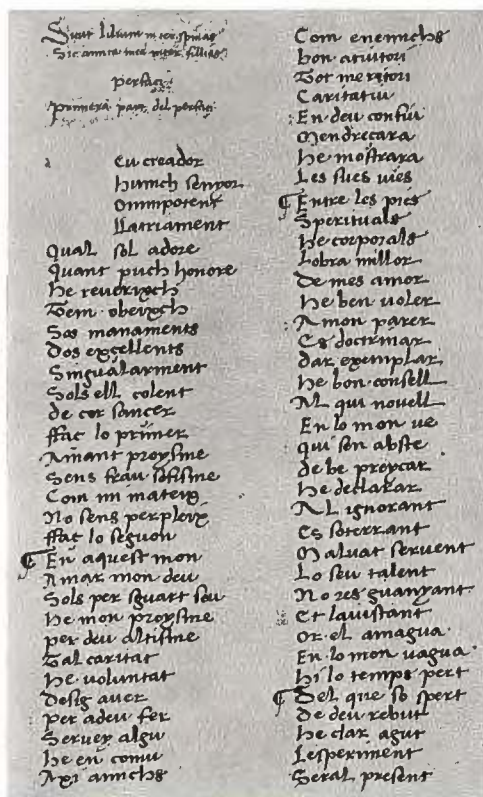 Sicut lilium inter spinas
Sic amica mea inter fillias
Perfaci
Primera part del perfaci
Eu creador
hunich senyor
omnipotent
llatriament
Qual sol adore
Quant puch honore
he reverixch
Tem obeixch
Sos manaments
Dos excellents
Singualarment
Sols ell colent
de cor sancer
ffac lo primer
Amant proysme
Sens frau sofisme
Com mi mateix
No sens perpleix
ffac lo seguon
En aquest mon
Amar mon deu
Sols per sguart seu
He mon proysme
per deu altisme
Tal caritat
he voluntat
Desig aver
per adeu fer
Servey algu
he en comu
Axi amichs
Com enemichs
bon aiutori
Tot meritori
Caritatiu
En deu confiu
Mendreçara
he mostrara
Les sues vies
Entre les pies
Sperituals
He corporals
lobra millor
De mes amor
he ben voler
A mon parer
Es doctrinar
dar exemplar
he bon consell
AL qui novell
En lo mon ve
qui son abste
de be preycar
he declarar
AL ignorant
Es soterrant
Malvat servent
Lo seu talent
No res guanyant
Et lavistant
or el amagua
En lo mon vagua
hi lo temps pert
Del que so spert
De deu rebut
he clar agut
Lesperiment
Seral present